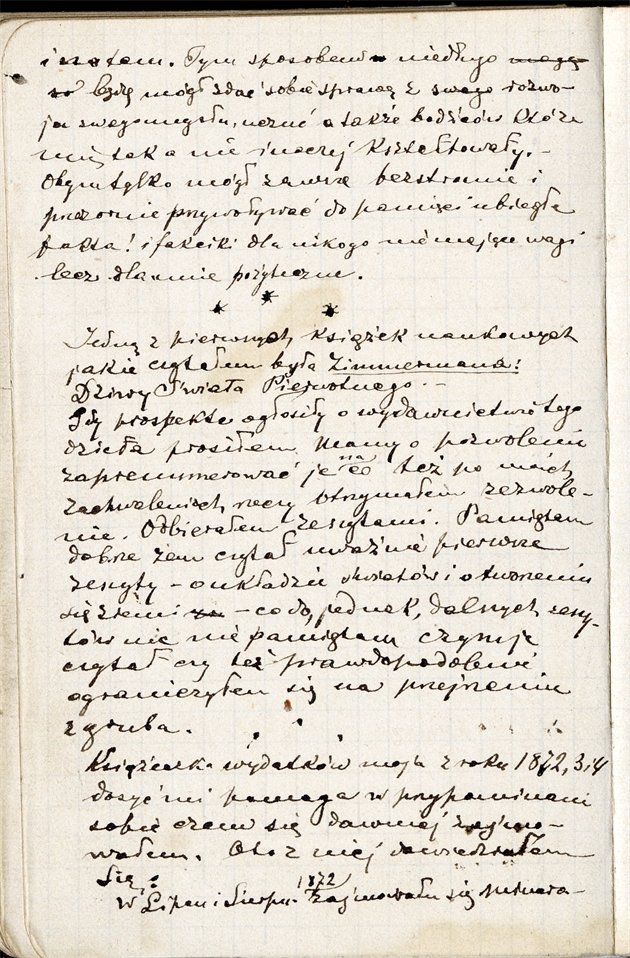 i na tem. Tym sposobem niedługo
będę mógł zdać sobie sprawę z swego rozwo-
ju swego umysłu, uczuć a także bodźców które
mię tak a nie inaczej kształtowały. -
Obym tylko mógł zawsze bezstronnie i
pozornie przywoływać do pamięci ubiegłe
fakta! i fakciki dla nikogo nie mające wagi
lecz dla mnie pożyteczne.
* * *
Jedną z pierwszych książek naukowych
jakie czytałem była Zimmermana:
Dziwy Świata Pierwotnego. -
Gdy prospekta ogłosiły o wydawnictwie tego
dzieła prosiłem Mamy o pozwolenie
zaprenumerować je na co też po moich
zachwaleniach rzeczy otrzymałem zezwole-
nie. Odbierałem zeszytami. Pamiętam
dobrze żem czytał uważnie pierwsze
zeszyty - o układzie światów i o tworzeniu
się ziemi - co do, jednak, dalszych zeszy-
tów nie nie pamiętam czym je
czytał czy też prawdopodobnie
ograniczyłem się na przejrzeniu
z gruba.
Książeczka wydatków moja z roku 1872, 3 i 4
dosyć mi pomaga w przypominaniu
sobie czem się dawniej zajmo-
wałem. Oto z niej dowiedziałem
się:
W Lipcu i Sierpn. 1872 zajmowałem się